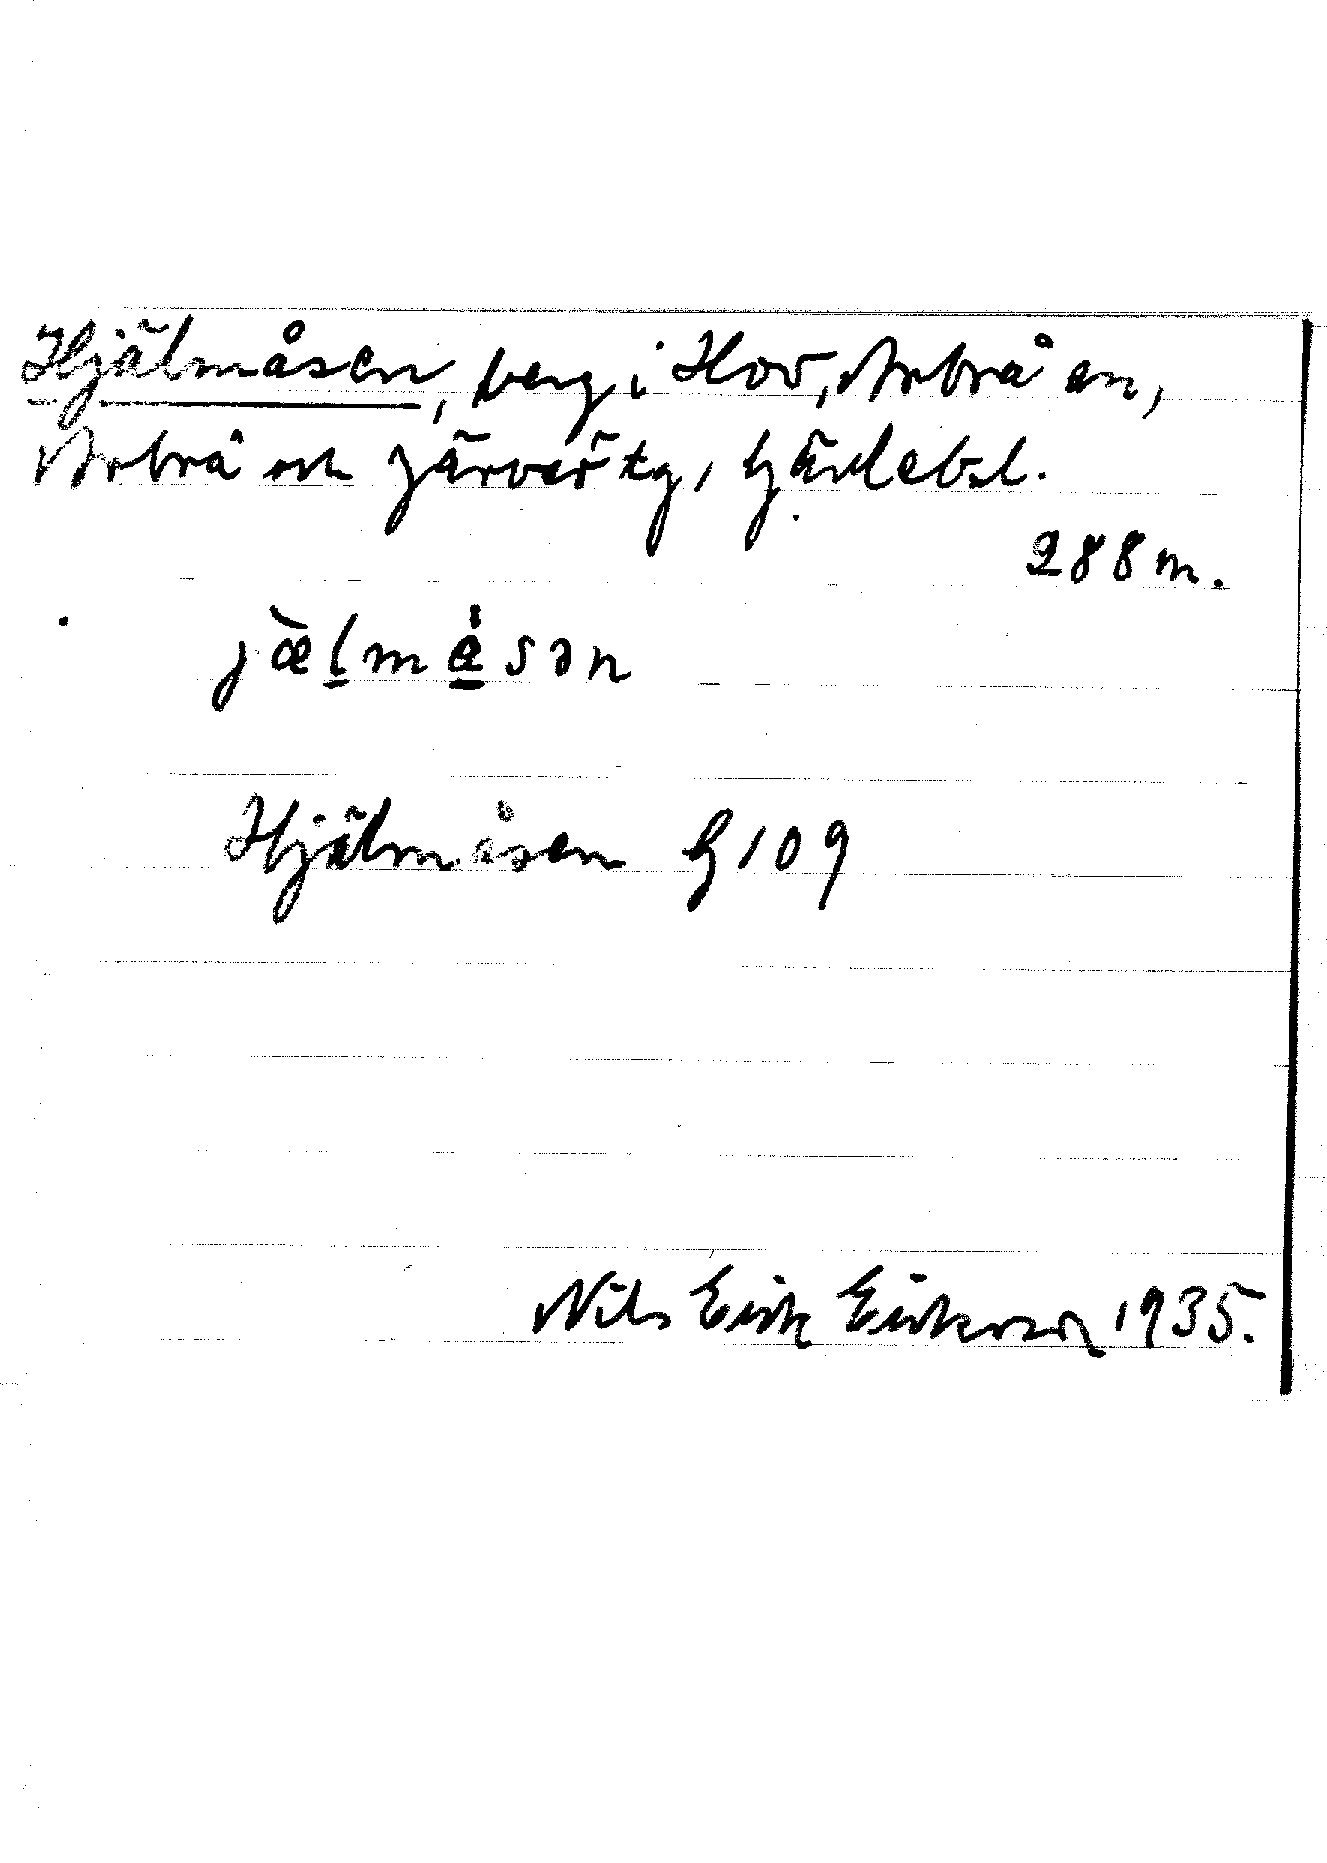 Hjälmåsen, berg i Hov, Arbrå sn,
Arbrå och Järvsö tg, Gävlebsl.
288 m.
jæ̀lmåsən
Hjälmåsen G 109
Nils Erik Eriksson 1935.